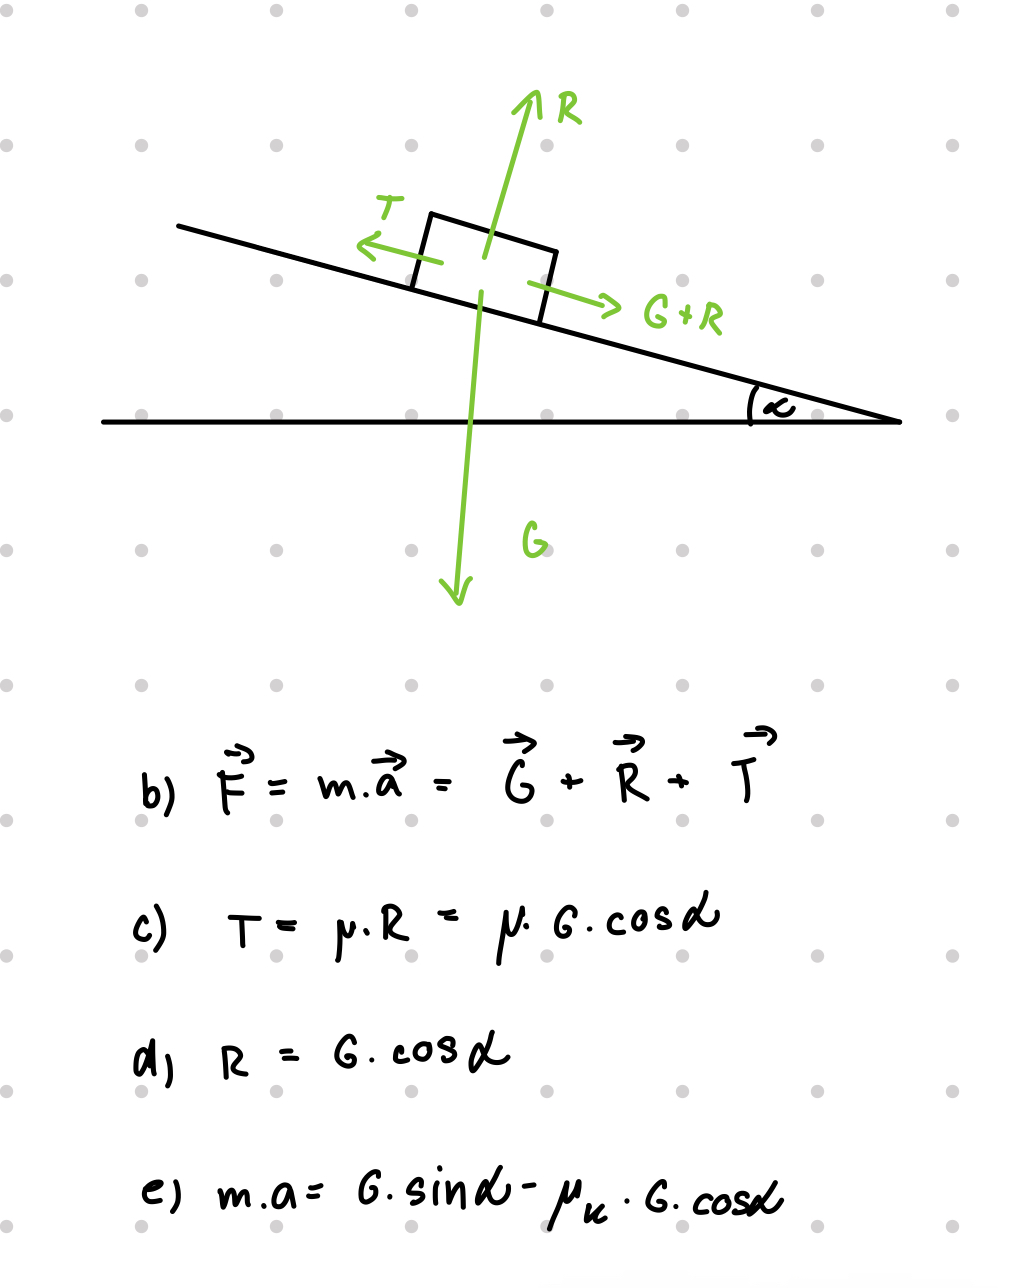 R
T
G+R
α
G
b) F⃗ = m.a⃗ = G⃗ + R⃗ + T⃗
c) T = μ.R = μ. G. cosα
d) R = G. cosα
e) m.a = G. sinα - μₖ . G. cosα